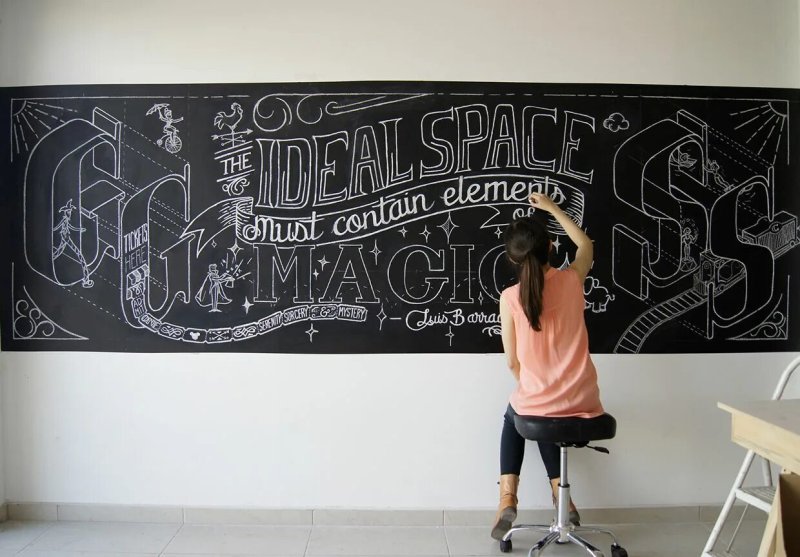 G
THE IDEAL SPACE
Must contain elements
of
MAGIC
— Luis
TICKETS
HERE
SERENITY SORCERY & MYSTERY
S